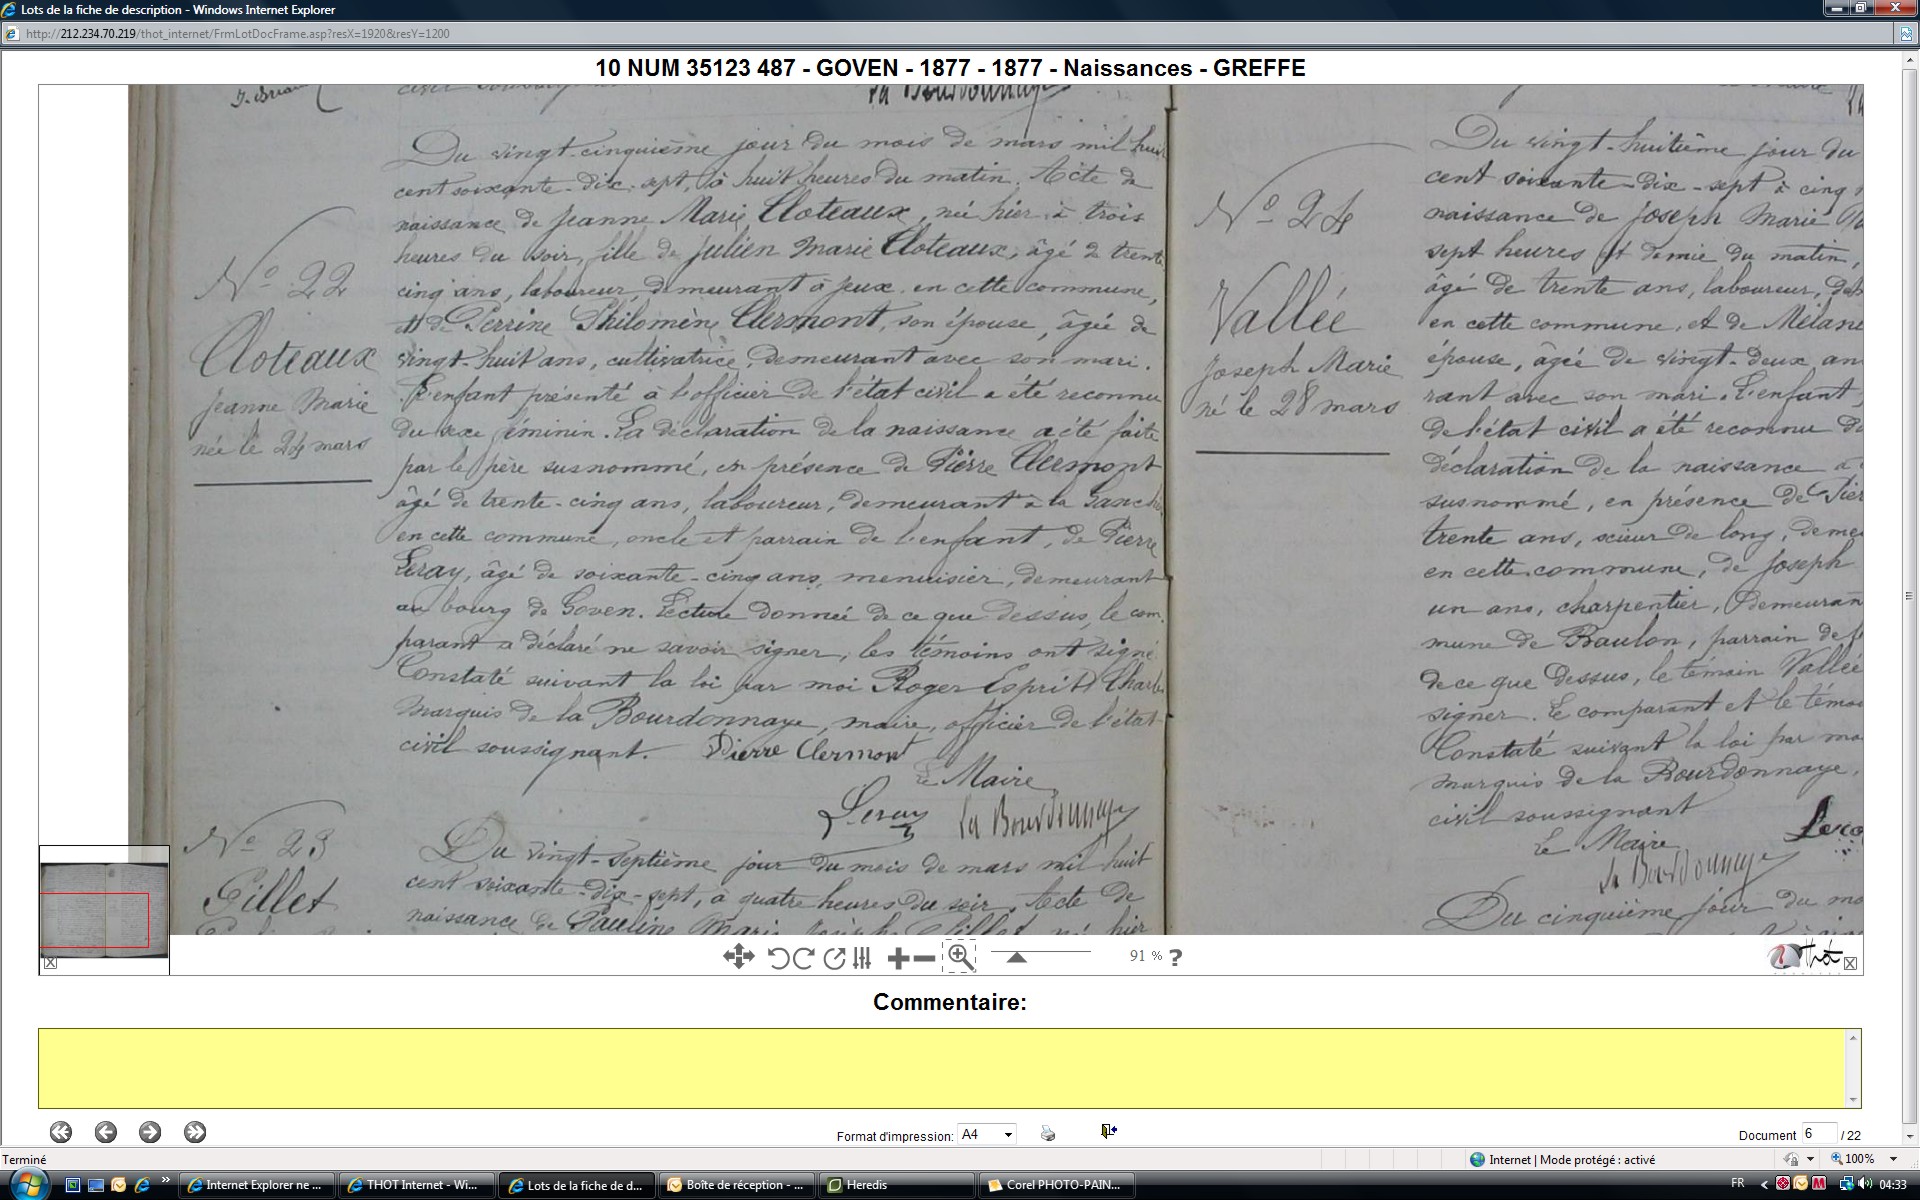 Lots de la fiche de description - Windows Internet Explorer
http://212.234.70.219/thot_internet/FrmLotDocFrame.asp?resX=1920&resY=1200
10 NUM 35123 487 - GOVEN - 1877 - 1877 - Naissances - GREFFE
La Bourdonnaye
Nº 22
Cloteaux
Jeanne Marie
née le 24 mars
Du vingt-cinquième jour du mois de mars mil huit
cent soixante-dix-sept, à huit heures du matin. Acte de
naissance de Jeanne Marie Cloteaux, née hier à trois
heures du soir, fille de Julien Marie Cloteaux, âgé de trente
cinq ans, laboureur, demeurant à Jeux en cette commune,
et de Perrine Philomène Clermont, son épouse, âgée de
vingt-huit ans, cultivatrice, demeurant avec son mari.
L'enfant présenté à l'officier de l'état civil a été reconnu
du sexe féminin. La déclaration de la naissance a été faite
par le père susnommé, en présence de Pierre Clermont
âgé de trente-cinq ans, laboureur, demeurant à la
en cette commune, oncle et parrain de l'enfant, de Pierre
Leray, âgé de soixante-cinq ans, menuisier, demeurant
au bourg de Goven. Lecture donnée de ce que dessus, le com
parant a déclaré ne savoir signer, les témoins ont signé
Constaté suivant la loi par moi Roger Esprit Charles
Marquis de la Bourdonnaye, maire, officier de l'état
civil soussignant. Pierre Clermont
Le Maire
Leray La Bourdonnaye
Nº 23
Gillet
Du vingt-septième jour du mois de mars mil huit
cent soixante-dix-sept, à quatre heures du soir. Acte de
naissance de Pauline Marie Joseph Gillet, né hier
Nº 24
Vallée
Joseph Marie
né le 28 mars
Du vingt-huitième jour du
cent soixante-dix-sept à cinq
naissance de Joseph Marie
sept heures et demie du matin,
âgé de trente ans, laboureur,
en cette commune, et de Mélanie
épouse, âgée de vingt-deux ans
rant avec son mari. L'enfant
de l'état civil a été reconnu du
déclaration de la naissance a
susnommé, en présence de Pierre
trente ans, scieur de long, deme
en cette commune, de Joseph
un ans, charpentier, demeuran
mune de Baulon, parrain de
de ce que dessus, le témoin Vallée
signer. Le comparant et le témoi
Constaté suivant la loi par moi
marquis de la Bourdonnaye,
civil soussignant
Le Maire
La Bourdonnaye
Du cinquième jour du mo
91 % ?
Thot
Commentaire:
Format d'impression: A4
Document 6 / 22
Terminé
Internet | Mode protégé : activé
100%
Internet Explorer ne ...
THOT Internet - Wi...
Lots de la fiche de d...
Boîte de réception - ...
Heredis
Corel PHOTO-PAIN...
FR
04:33